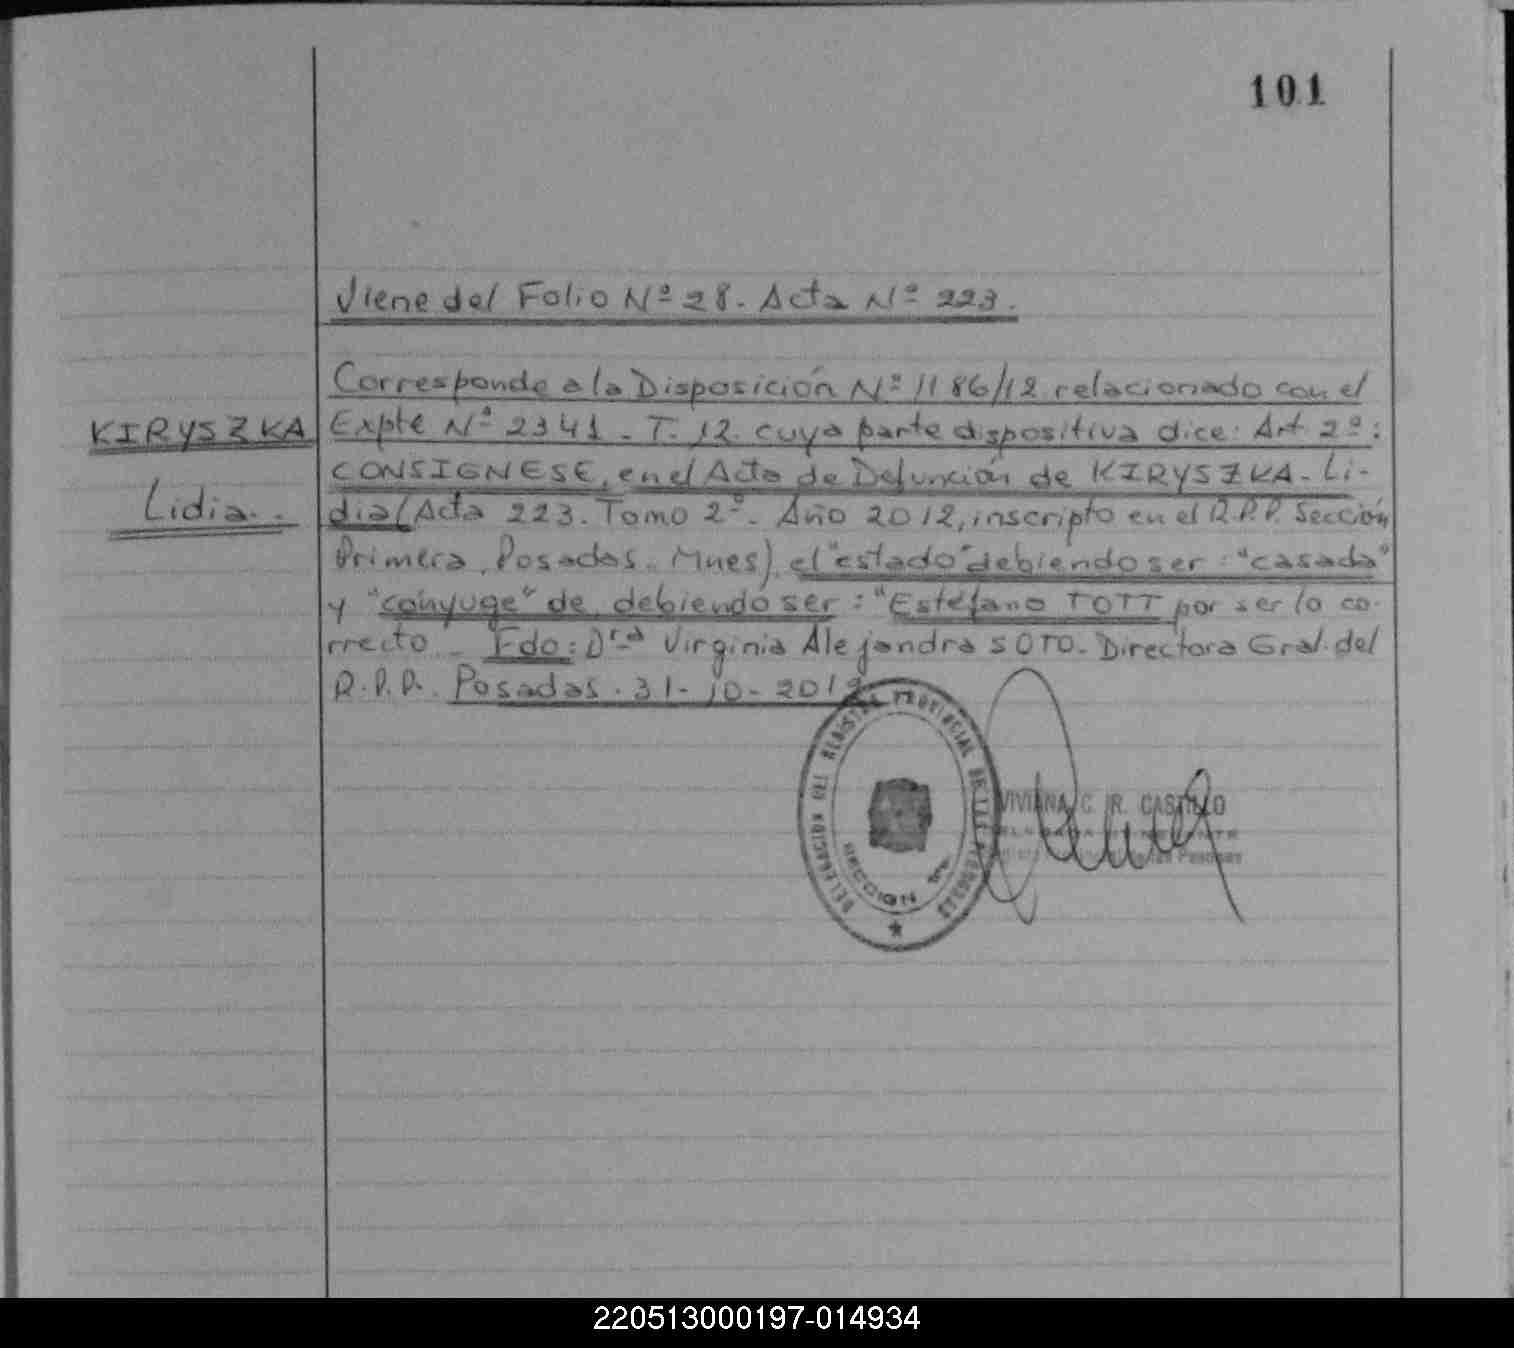 101
Viene del Folio Nº 28. Acta Nº 223.
Corresponde a la Disposición Nº 1186/12 relacionado con el
KIRYSZKA
Expte Nº 2341 - T. 12. cuya parte dispositiva dice: Art 2º:
CONSIGNESE, en el Acta de Defunción de KIRYSZKA - Li-
Lidia..
dia (Acta 223. Tomo 2º. Año 2012, inscripto en el R.P.P. Sección
Primera, Posadas. Mnes), el "estado" debiendo ser: "casada"
y "cónyuge" de, debiendo ser: "Estéfano TOTT por ser lo co-
rrecto. Fdo: Dra Virginia Alejandra SOTO. Directora Gral. del
R.P.P. Posadas. 31-10-2012
DELEGACION DEL REGISTRO PROVINCIAL DE LAS PERSONAS
SECCION 1ª
VIVIANA C. R. CASTILLO
220513000197-014934